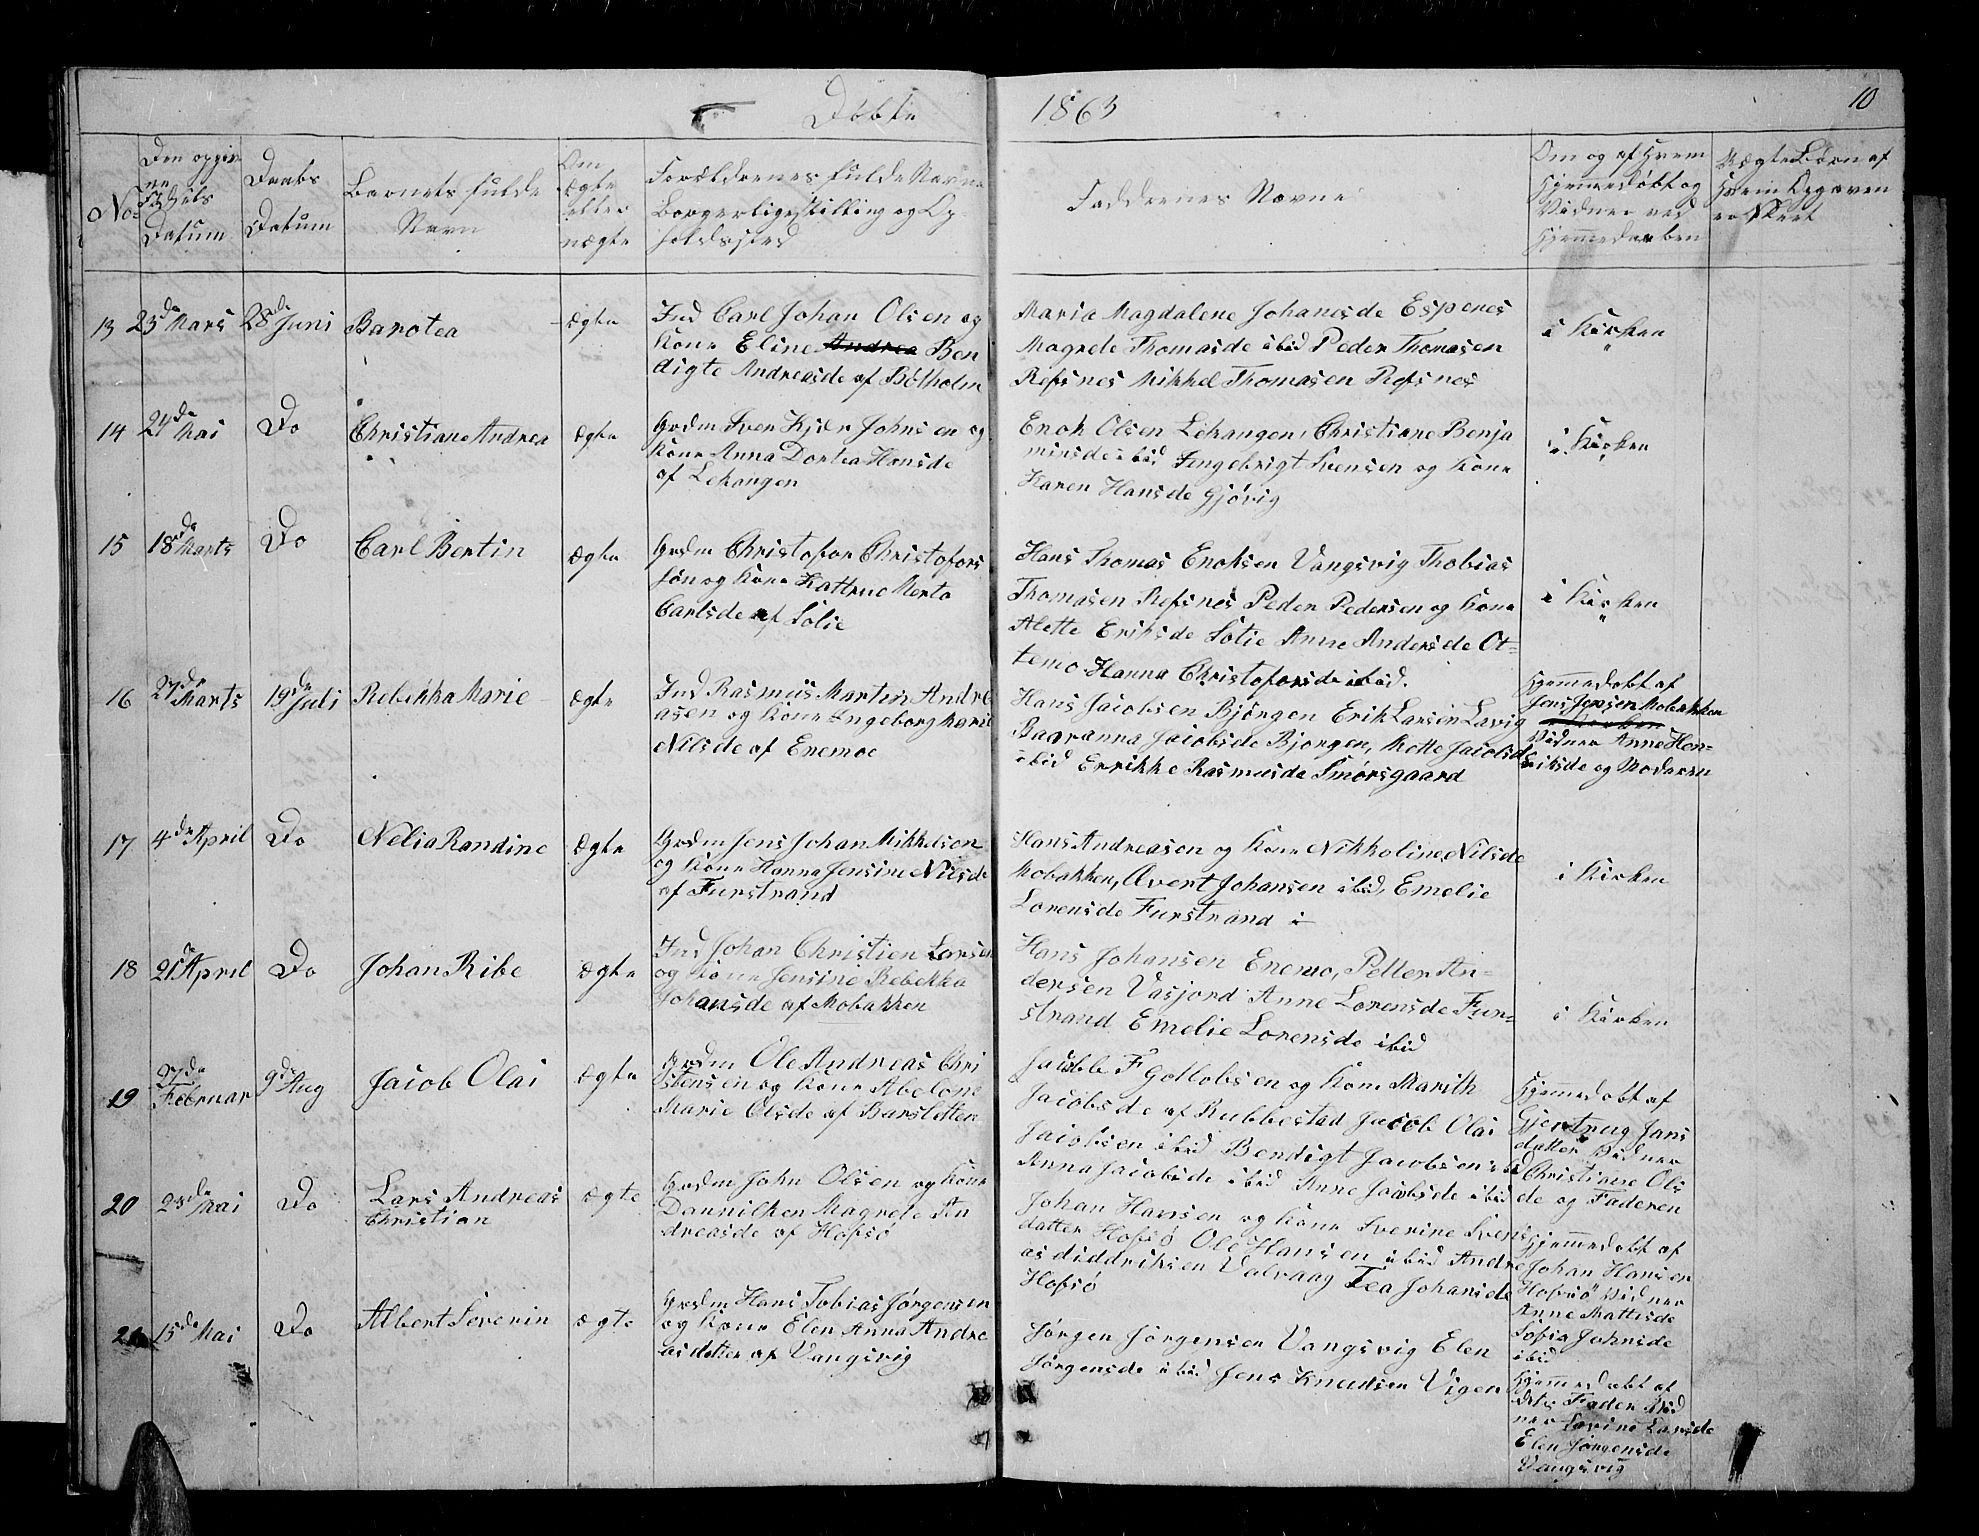 Døbte
1863
10
No
Den opgiv
ne
Fødsels
Datum
Daabs
Datum
Barnets fulde
Navn
Om
Ægte
eller
uægte
Forældrenes fulde Navne
Borgerlige Stilling og Op-
holdssted
Faddrenes Navne
Om og af Hvem
Hjemmedøbt og
Vidner ved
Hjemmedaaben
Uægte Børn af
Hvem Opgaven
er Skeet
13
23de Mars
28de Juni
Barotea
Ægte
Ind Carl Johan Olsen og
Kone Eline Andrea Ben
digte Andreasde af Bølholm
Maria Magdalene Johanesde Espenes
Magrete Thomasde ibid Peder Thomasen
Refsnes Mikkel Thomasen Refsnes
i Kirken
14
24de Mai
Do
Christiane Andrea
Ægte
Grdm Sven Kjær Johnsen og
Kone Anna Dortea Hansde
af Lekangen
Enok Olsen Lekangen, Christiane Benja
minsde ibid Ingebrigt Svensen og Kone
Karen Hansde Gjøvig
i Kirken
15
18de Marts
Do
Carl Bertin
Ægte
Grdm Christofor Christofors
søn og Kone Kattrine Merta
Carlsde af Solie
Hans Thomas Enoksen Vangsvig Thobias
Thomasen Refsnes Peder Pedersen og Kone
Alette Eriksde Solie Anne Andersde Ot=
temo Hanna Christoforsde ibid.
i Kirken
16
27de Marts
19de Juli
Rebekka Marie
Ægte
Ind Rasmus Martin Andre
asen og Kone Ingeborg Marie
Nilsde af Enemoe
Hans Jacobsen Bjørgen Erik Larsen Lavig
Baaranna Jacobsde Bjorgen, Mette Jacobsde
ibid Errikke Rasmusde Smørsgaard
Hjemmedøbt af
Jens Jensen Mobakken
Vidner Anne Hen=
riksde og Moderen
17
4de April
Do
Nelia Randine
Ægte
Grdm Jens Johan Mikkelsen
og Kone Hanna Jensine Nilsde
af Furstrand
Hans Andreasen og Kone Nikkoline Nilsde
Mobakken, Avert Johansen ibid, Emelie
Lorensde Furstrand i
i Kirken
18
21de April
Do
Johan Ribe
Ægte
Ind Johan Christien Larsen
og Kone Jensine Rebekka
Johansde af Mobakken
Hans Johansen Enemo, Petter An=
dersen Vasjord Anne Lorensde Fur=
strand Emelie Lorensde ibid
i Kirken
19
27de Februar
9de Aug
Jacob Olai
Ægte
Grdm Ole Andreas Chri
stensen og Kone Abelone
Marie Olsde af Barsletten
Jacob F Gotlobsen og Kone Marith
Jacobsde af Rubbestad Jacob Olai
Jacobsen ibid Bendigt Jacobsen ibi
Anna Jacobsde ibid Anne Jacobsde ibid
Hjemedøbt af
Gjertrug Jans
datter Vidner
Christiane Ols
de og Faderen
20
25de Mai
Do
Lars Andreas
Christian
Ægte
Grdm John Olsen og Kone
Dannilken Magrete An
dreasde af Hofsø
Johan Hansen og Kone Sverine Svens
datter Hofsø Ole Hansen ibid Andre
as diddriksen Valvaag Tea Johansde
Hofsø
Hjemmedøbt af
Johan Hansen
Hofsø Vidner
Anne Mattisde
Sofia Johnsde
ibid
21
15de Mai
Do
Albert Severin
Ægte
Grdm Hans Tobias Jørgensen
og Kone Elen Anna Andre
asdatter af Vangsvig
Jørgen Jørgensen Vangsvig Elen
Jørgensde ibid Jens Knudsen Vigen
Hjemmedøbt af
dets Fader Vid
ner Sevine Larsde
Elen Jørgensde
Vangsvig